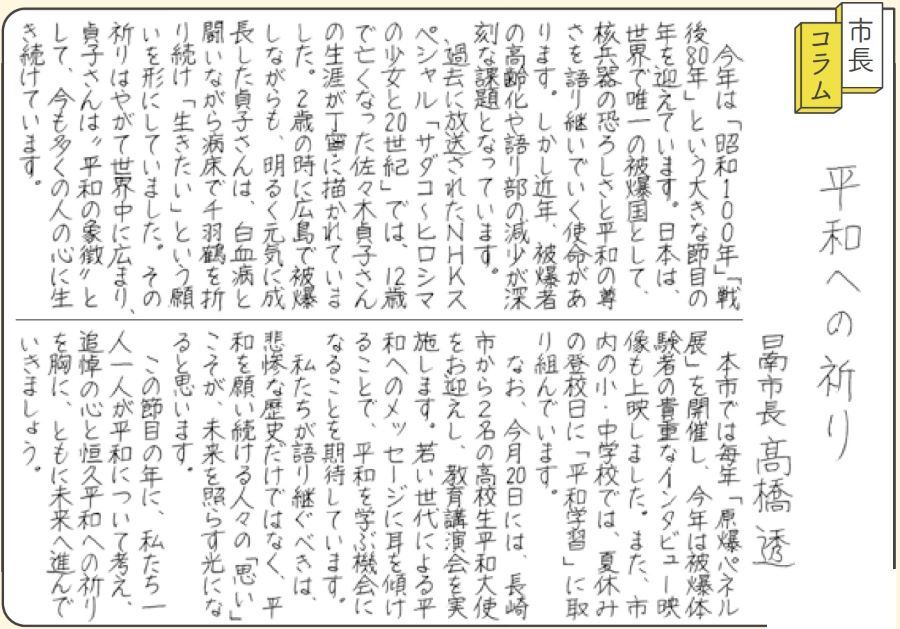 市長
コラム
平和への祈り
日南市長 髙橋 透
今年は「昭和100年」「戦
後80年」という大きな節目の
年を迎えています。日本は、
世界で唯一の被爆国として、
核兵器の恐ろしさと平和の尊
さを語り継いでいく使命があ
ります。しかし近年、被爆者
の高齢化や語り部の減少が深
刻な課題となっています。
過去に放送されたNHKス
ペシャル「サダコ～ヒロシマ
の少女と20世紀」では、12歳
で亡くなった佐々木貞子さん
の生涯が丁寧に描かれていま
した。2歳の時に広島で被爆
しながらも、明るく元気に成
長した貞子さんは、白血病と
闘いながら病床で千羽鶴を折
り続け「生きたい」という願
いを形にしていました。その
祈りはやがて世界中に広まり、
貞子さんは〝平和の象徴〟と
して、今も多くの人の心に生
き続けています。
本市では毎年「原爆パネル
展」を開催し、今年は被爆体
験者の貴重なインタビュー映
像も上映しました。また、市
内の小・中学校では、夏休み
の登校日に「平和学習」に取
り組んでいます。
なお、今月20日には、長崎
市から2名の高校生平和大使
をお迎えし、教育講演会を実
施します。若い世代による平
和へのメッセージに耳を傾け
ることで、平和を学ぶ機会に
なることを期待しています。
私たちが語り継ぐべきは、
悲惨な歴史だけではなく、平
和を願い続ける人々の「思い」
こそが、未来を照らす光にな
ると思います。
この節目の年に、私たち一
人一人が平和について考え、
追悼の心と恒久平和への祈り
を胸に、ともに未来へ進んで
いきましょう。